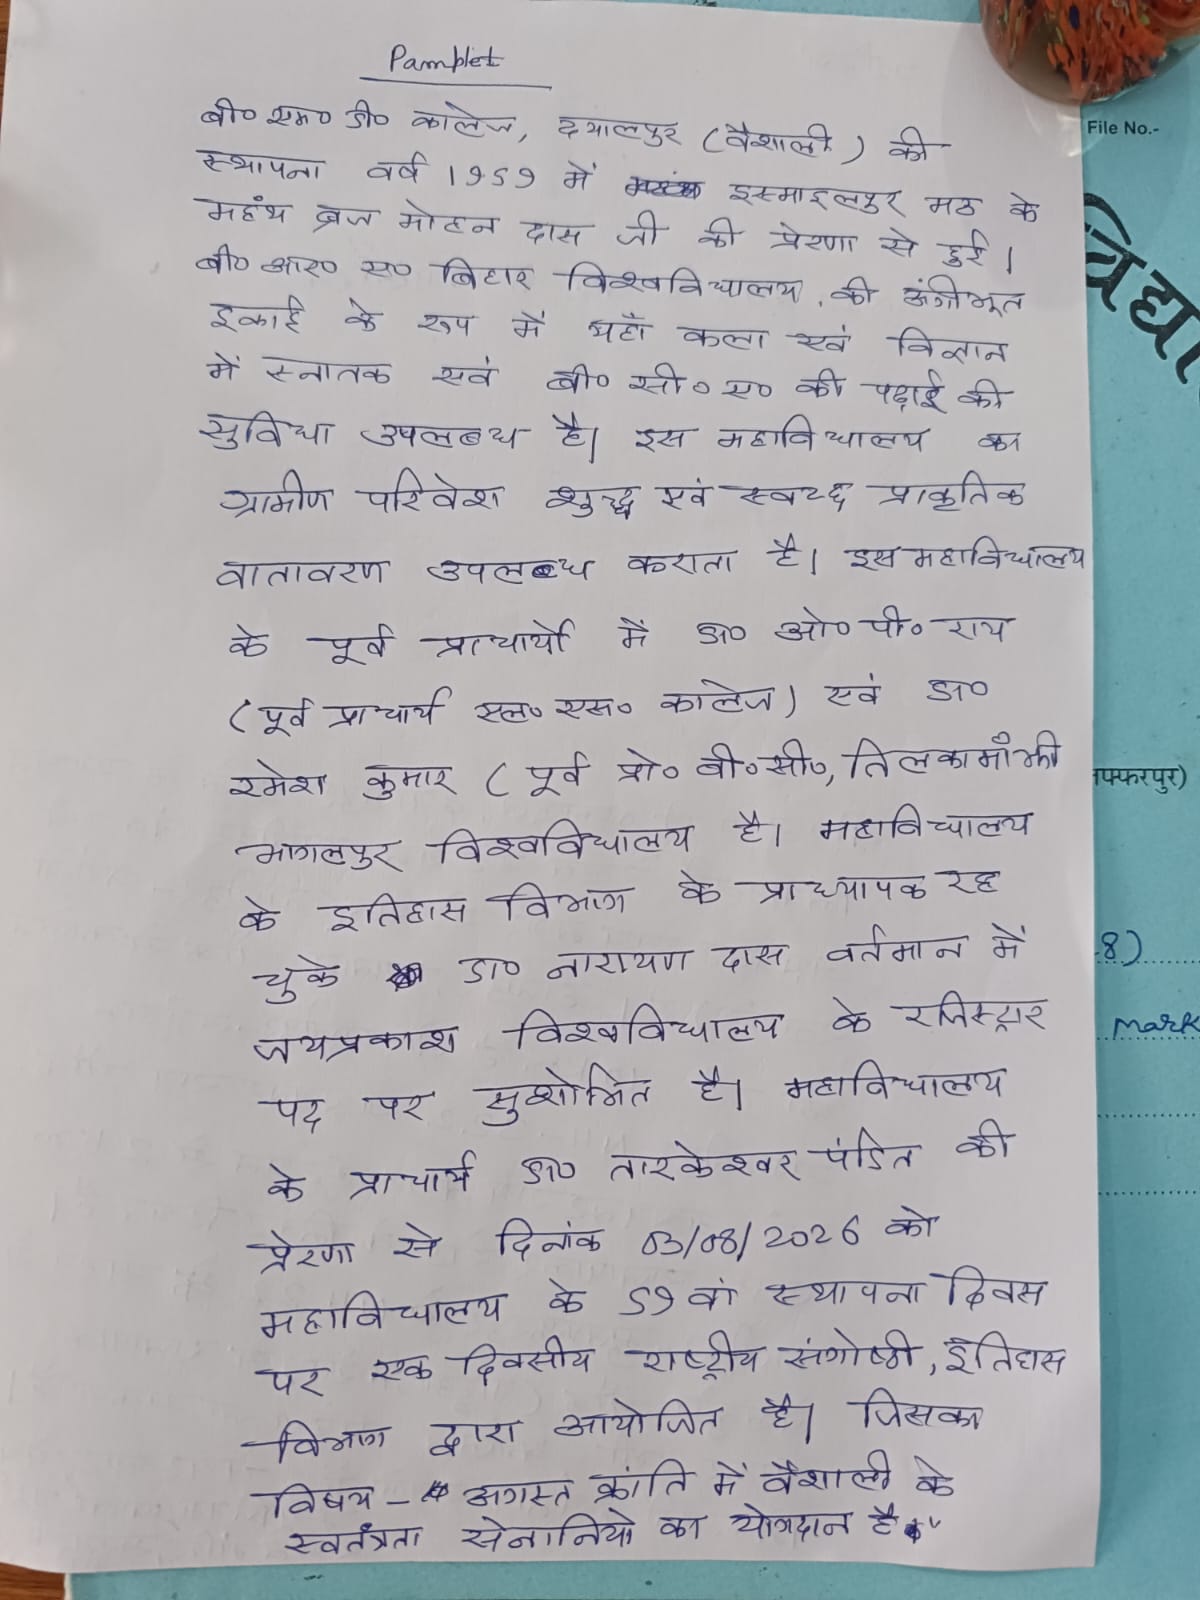 Pamplet
बी० एम० डी० कालेज, दयालपुर (वैशाली) की
स्थापना वर्ष 1959 में इस्माइलपुर मठ के
महंथ ब्रज मोहन दास जी की प्रेरणा से हुई।
बी० आर० ए० बिहार विश्वविद्यालय की अंगीभूत
इकाई के रूप में यहाँ कला एवं विज्ञान
में स्नातक एवं बी० सी० ए० की पढ़ाई की
सुविधा उपलब्ध है। इस महाविद्यालय का
ग्रामीण परिवेश शुद्ध एवं स्वच्छ प्राकृतिक
वातावरण उपलब्ध कराता है। इस महाविद्यालय
के पूर्व प्राचार्यो में डा० ओ० पी० राय
(पूर्व प्राचार्य एल० एस० कालेज) एवं डा०
रमेश कुमार (पूर्व प्रो० वी० सी०, तिलकामाँझी
भागलपुर विश्वविद्यालय है। महाविद्यालय
के इतिहास विभाग के प्राध्यापक रह
चुके डा० नारायण दास वर्तमान में
जयप्रकाश विश्वविद्यालय के रजिस्ट्रार
पद पर सुशोभित है। महाविद्यालय
के प्राचार्य डा० तारकेश्वर पंडित की
प्रेरणा से दिनांक 03/08/2026 को
महाविद्यालय के 59 वां स्थापना दिवस
पर एक दिवसीय राष्ट्रीय संगोष्ठी, इतिहास
विभाग द्वारा आयोजित है। जिसका
विषय - " अगस्त क्रांति में वैशाली के
स्वतंत्रता सेनानियो का योगदान है "
File No.-
विद्या
फ्फरपुर)
8)
mark